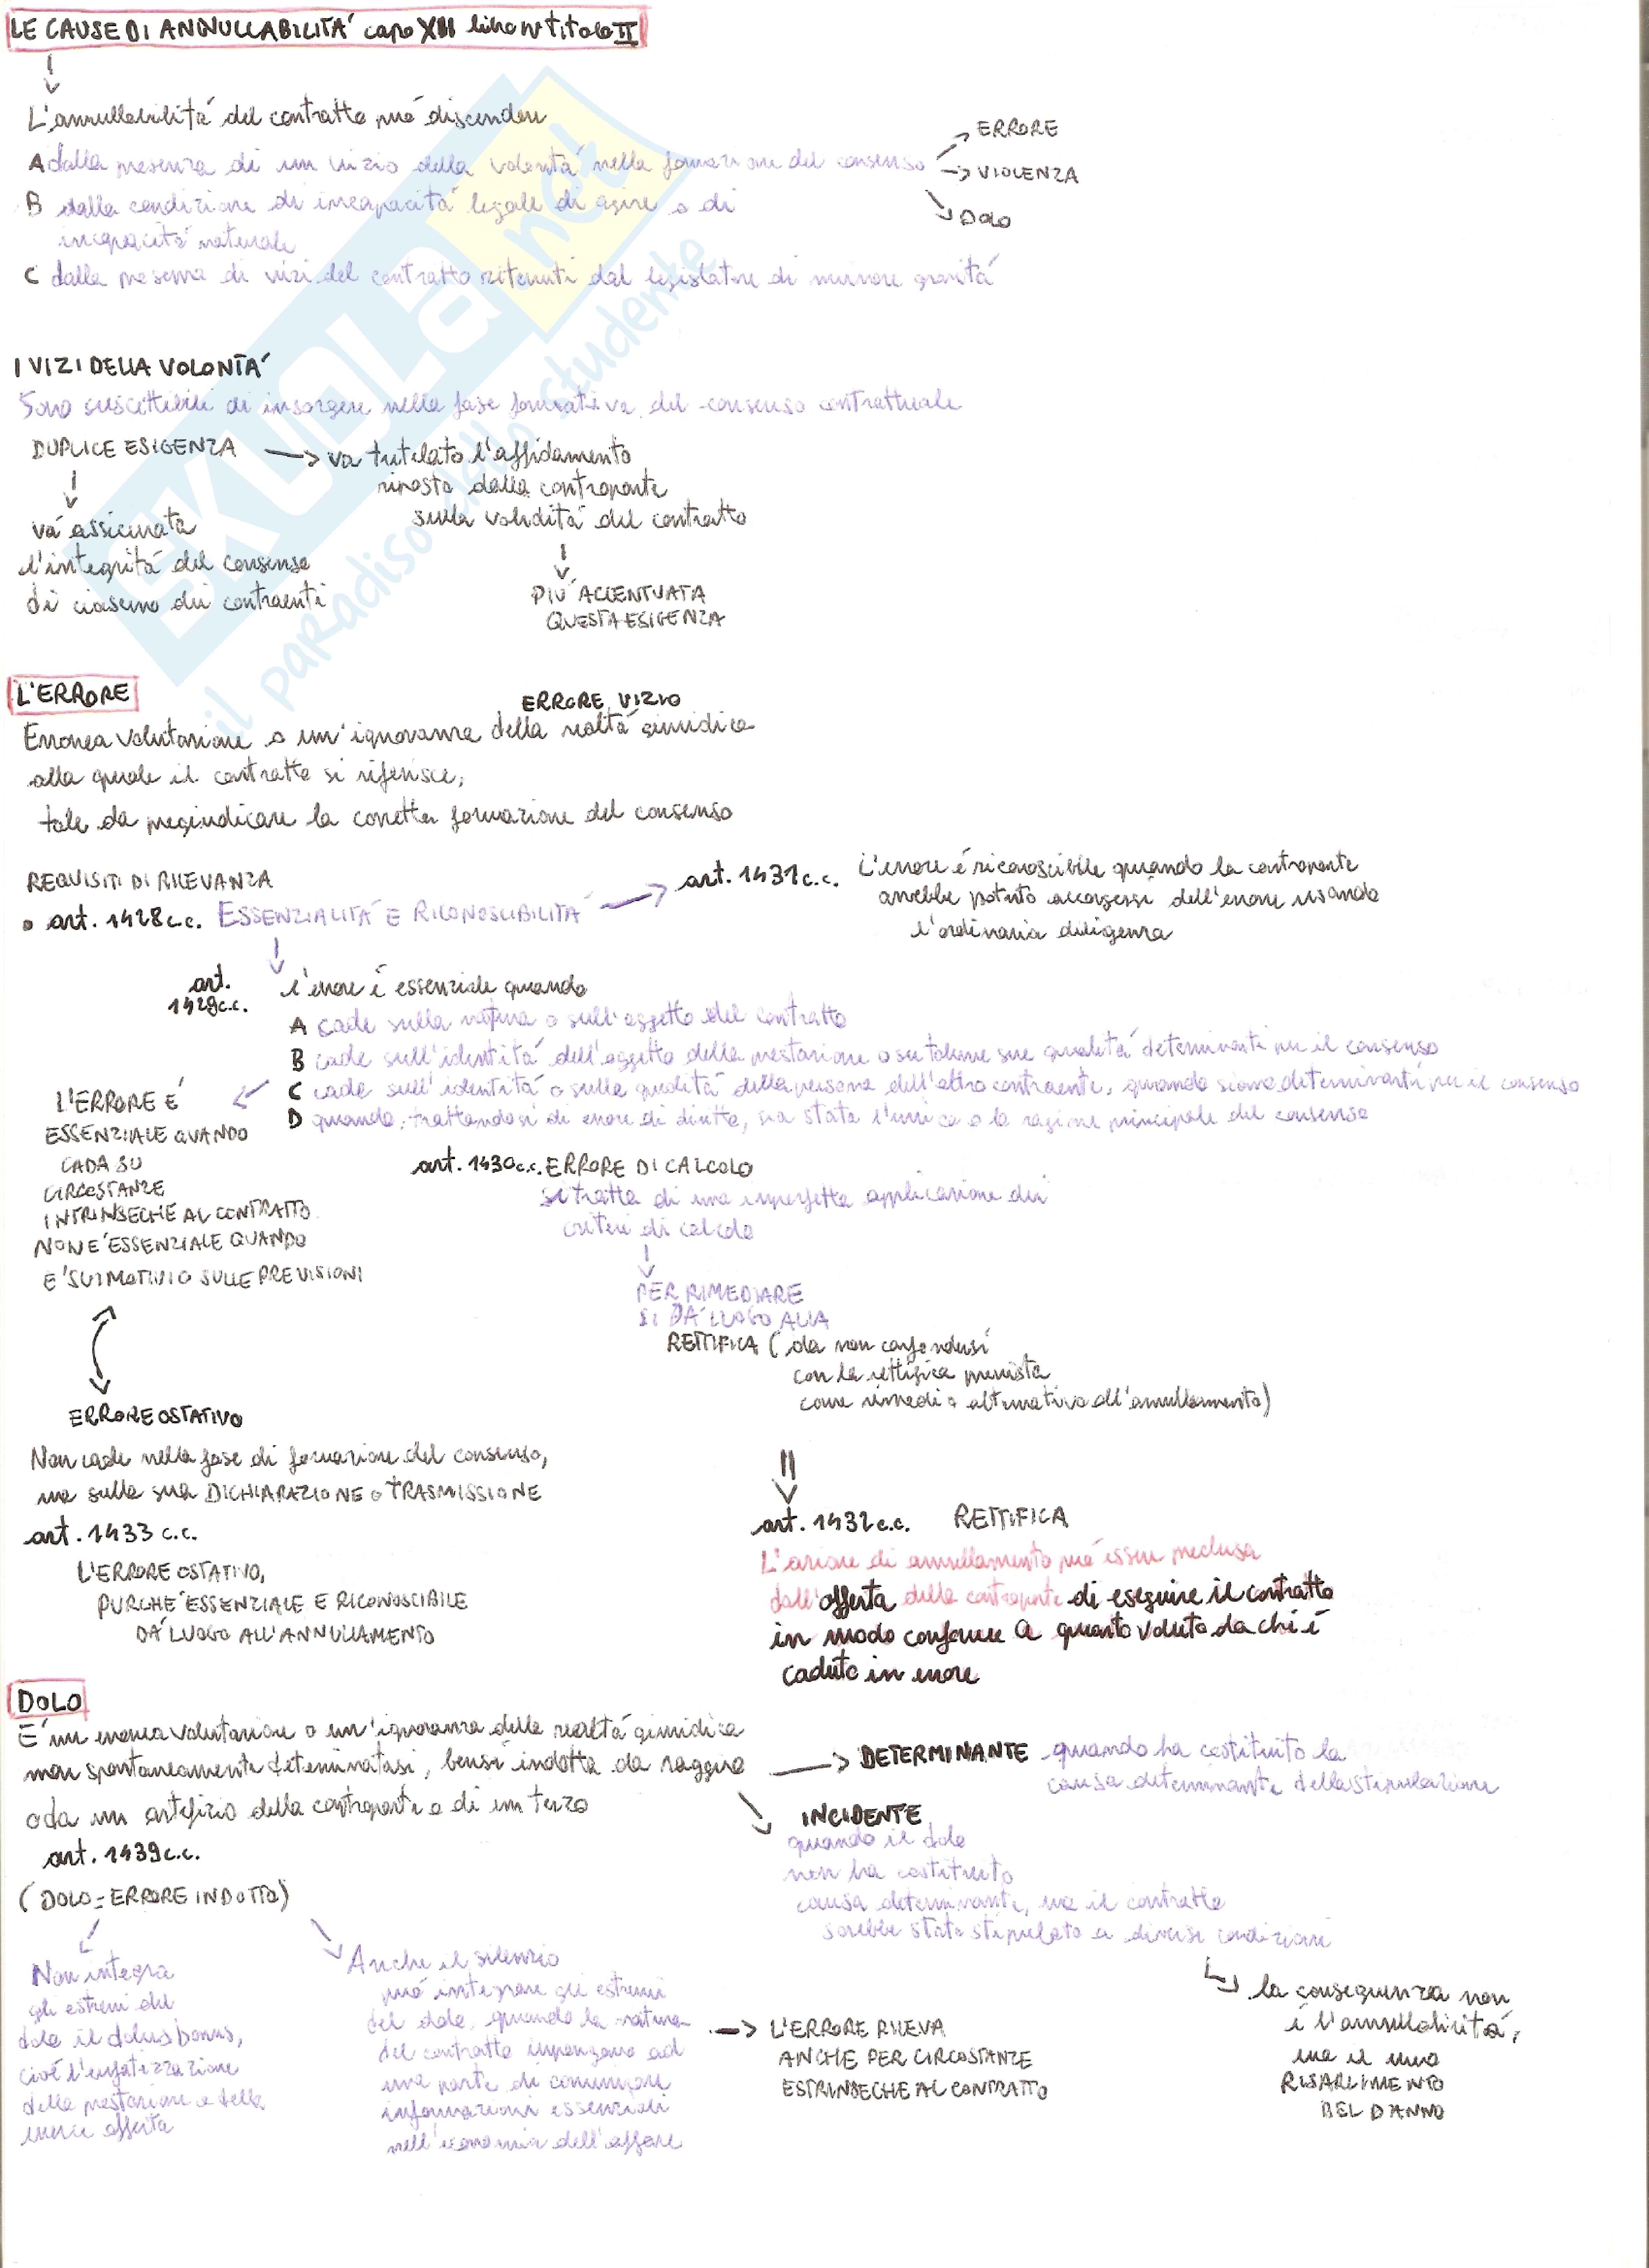 LE CAUSE DI ANNULLABILITA' capo XII libro IV titolo II
L'annullabilità del contratto può discendere
A dalla presenza di un vizio della volontà nella formazione del consenso
→ ERRORE
→ VIOLENZA
→ DOLO
B dalla condizione di incapacità legale di agire o di
incapacità naturale
C dalla presenza di vizi del contratto ritenuti dal legislatore di minore gravità
SKUOLA.net
il paradiso dello studente
I VIZI DELLA VOLONTA'
Sono suscettibili di insorgere nella fase formativa del consenso contrattuale
DUPLICE ESIGENZA → va tutelato l'affidamento
riposto dalla controparte
sulla validità del contratto
va assicurata
l'integrità del consenso
di ciascuno dei contraenti
PIU' ACCENTUATA
QUESTA ESIGENZA
L'ERRORE
ERRORE VIZIO
Erronea valutazione o un'ignoranza della realtà giuridica
alla quale il contratto si riferisce,
tale da pregiudicare la corretta formazione del consenso
REQUISITI DI RILEVANZA
• art. 1428 c.c. ESSENZIALITA' E RICONOSCIBILITA'
→ art. 1431 c.c. L'errore è riconoscibile quando la controparte
avrebbe potuto accorgersi dell'errore usando
l'ordinaria diligenza
art.
1429 c.c.
l'errore è essenziale quando
A cade sulla natura o sull'oggetto del contratto
B cade sull'identità dell'oggetto della prestazione o su talune sue qualità determinanti per il consenso
C cade sull'identità o sulla qualità della persona dell'altro contraente, quando siano determinanti per il consenso
D quando, trattandosi di errore di diritto, sia stata l'unica o la ragione principale del consenso
L'ERRORE É
ESSENZIALE QUANDO
CADA SU
CIRCOSTANZE
INTRINSECHE AL CONTRATTO
NON E' ESSENZIALE QUANDO
E' SUI MOTIVI O SULLE PREVISIONI
art. 1430 c.c. ERRORE DI CALCOLO
si tratta di una imperfetta applicazione dei
criteri di calcolo
PER RIMEDIARE
SI DA' LUOGO ALLA
RETTIFICA (da non confondersi
con la rettifica prevista
come rimedio alternativo all'annullamento)
ERRORE OSTATIVO
Non cade nella fase di formazione del consenso,
ma sulla sua DICHIARAZIONE o TRASMISSIONE
art. 1433 c.c.
L'ERRORE OSTATIVO,
PURCHE' ESSENZIALE E RICONOSCIBILE
DA' LUOGO ALL'ANNULLAMENTO
art. 1432 c.c. RETTIFICA
L'azione di annullamento può essere preclusa
dall'offerta della controparte di eseguire il contratto
in modo conforme a quanto voluto da chi è
caduto in errore
DOLO
E' un'erronea valutazione o un'ignoranza della realtà giuridica
non spontaneamente determinatasi, bensì indotta da raggiro
o da un artefizio della controparte o di un terzo
art. 1439 c.c.
(DOLO = ERRORE INDOTTO)
→ DETERMINANTE quando ha costituito la
causa determinante della stipulazione
INCIDENTE
quando il dolo
non ha costituito
causa determinante, ma il contratto
sarebbe stato stipulato a diverse condizioni
la conseguenza non
è l'annullabilità,
ma il mero
RISARCIMENTO
DEL DANNO
Non integra
gli estremi del
dolo il dolus bonus,
cioè l'enfatizzazione
della prestazione o della
merce offerta
Anche il silenzio
può integrare gli estremi
del dolo, quando la natura
del contratto impongano ad
una parte di comunicare
informazioni essenziali
nell'economia dell'affare
→ L'ERRORE RILEVA
ANCHE PER CIRCOSTANZE
ESTRINSECHE AL CONTRATTO